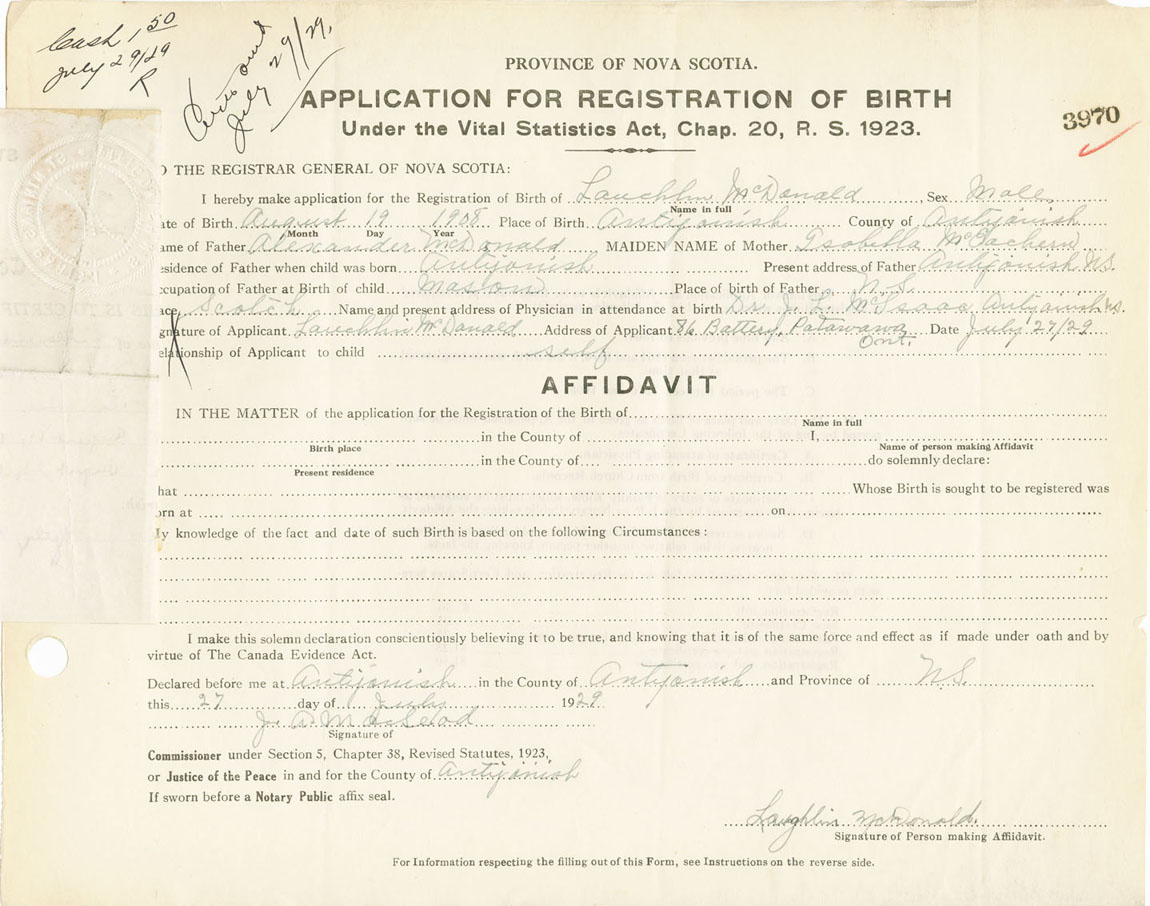 Cash 1.50
July 29/29
R
July 29/29.
PROVINCE OF NOVA SCOTIA.
APPLICATION FOR REGISTRATION OF BIRTH
Under the Vital Statistics Act, Chap. 20, R. S. 1923.
3970
O THE REGISTRAR GENERAL OF NOVA SCOTIA:
I hereby make application for the Registration of Birth of Lauchlin McDonald, Sex Male
Name in full
ate of Birth August 19 1908 Place of Birth Antigonish County of Antigonish
Month Day Year
ame of Father Alexander McDonald MAIDEN NAME of Mother Isabella McEachern
esidence of Father when child was born Antigonish Present address of Father Antigonish N.S.
ccupation of Father at Birth of child Mason Place of birth of Father N.S.
ace Scotch Name and present address of Physician in attendance at birth Dr. McIsaac Antigonish N.S.
gnature of Applicant Lauchlin McDonald Address of Applicant 86 Battery, Patawawa Ont. Date July 27/29
elationship of Applicant to child self
AFFIDAVIT
IN THE MATTER of the application for the Registration of the Birth of
Name in full
in the County of I,
Birth place Name of person making Affidavit
in the County of do solemnly declare:
Present residence
hat Whose Birth is sought to be registered was
orn at on
y knowledge of the fact and date of such Birth is based on the following Circumstances:
I make this solemn declaration conscientiously believing it to be true, and knowing that it is of the same force and effect as if made under oath and by
virtue of The Canada Evidence Act.
Declared before me at Antigonish in the County of Antigonish and Province of N.S.
this 27 day of July 1929
McLeod
Signature of
Commissioner under Section 5, Chapter 38, Revised Statutes, 1923,
or Justice of the Peace in and for the County of Antigonish
If sworn before a Notary Public affix seal.
Laughlin McDonald.
Signature of Person making Affidavit.
For Information respecting the filling out of this Form, see Instructions on the reverse side.